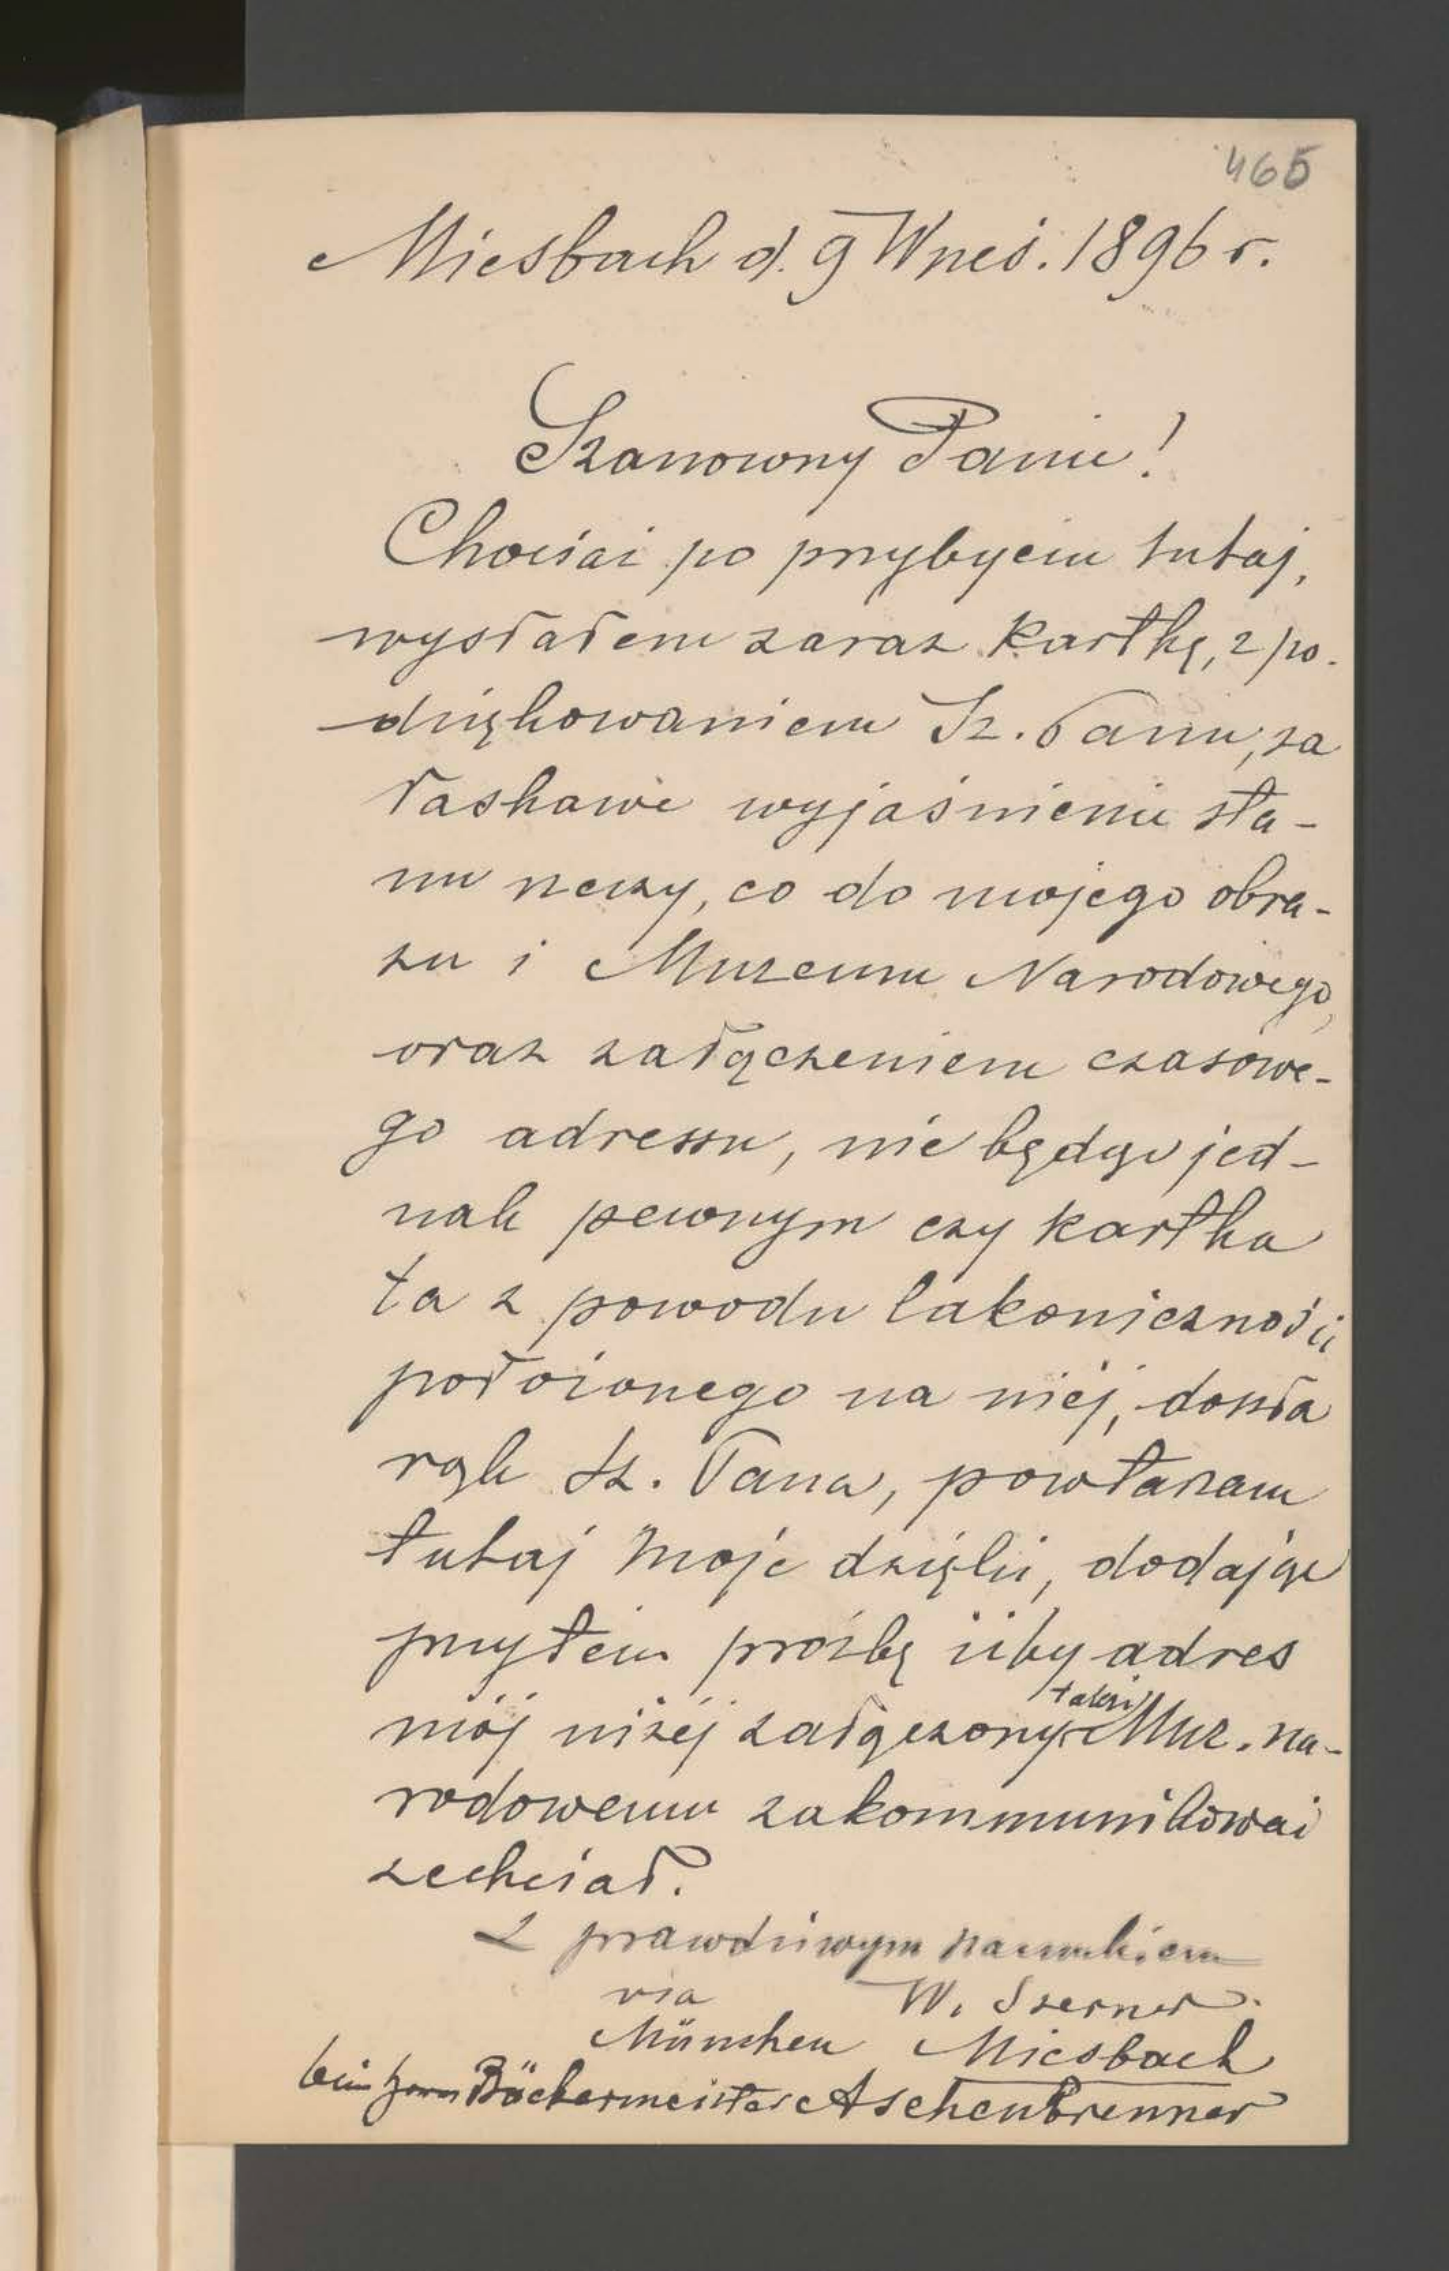 465
Miesbach d. 9 Wrześ. 1896 r.
Szanowny Panie!
Chociaż po przybyciu tutaj,
wysłałem zaraz kartkę, z po-
dziękowaniem Sz. Panu, za
łaskawe wyjaśnienie sta-
nu rzeczy, co do mojego obra-
zu i Muzeum Narodowego,
oraz załączeniem czasowe-
go adressu, nie będąc jed-
nak pewnym czy kartka
ta z powodu lakoniczności
położonego na niéj, doszła
rąk Sz. Pana, powtarzam
tutaj moje dzięki, dodając
przytem prośbę iżby adres
mój niżéj załączony także Muz. na-
rodowemu zakommunikować
zechciał.
Z prawdziwym szacunkiem
via W. Szerner.
München Miesbach
beim Herrn Bäckermeister Aschenbrenner